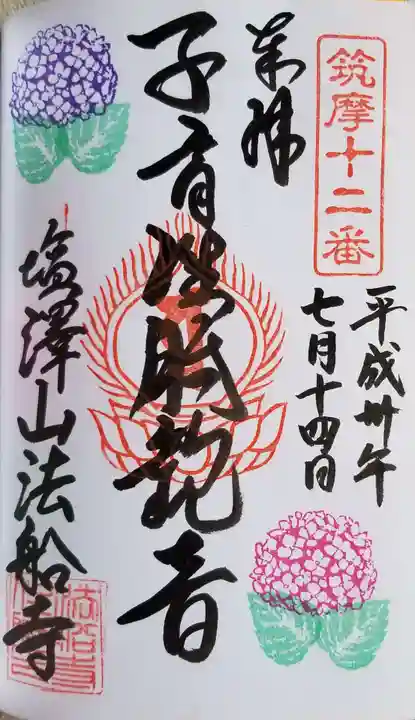 筑摩十二番
平成卅年
七月十四日
奉拝
子育地蔵観音
塩澤山法船寺
法船寺